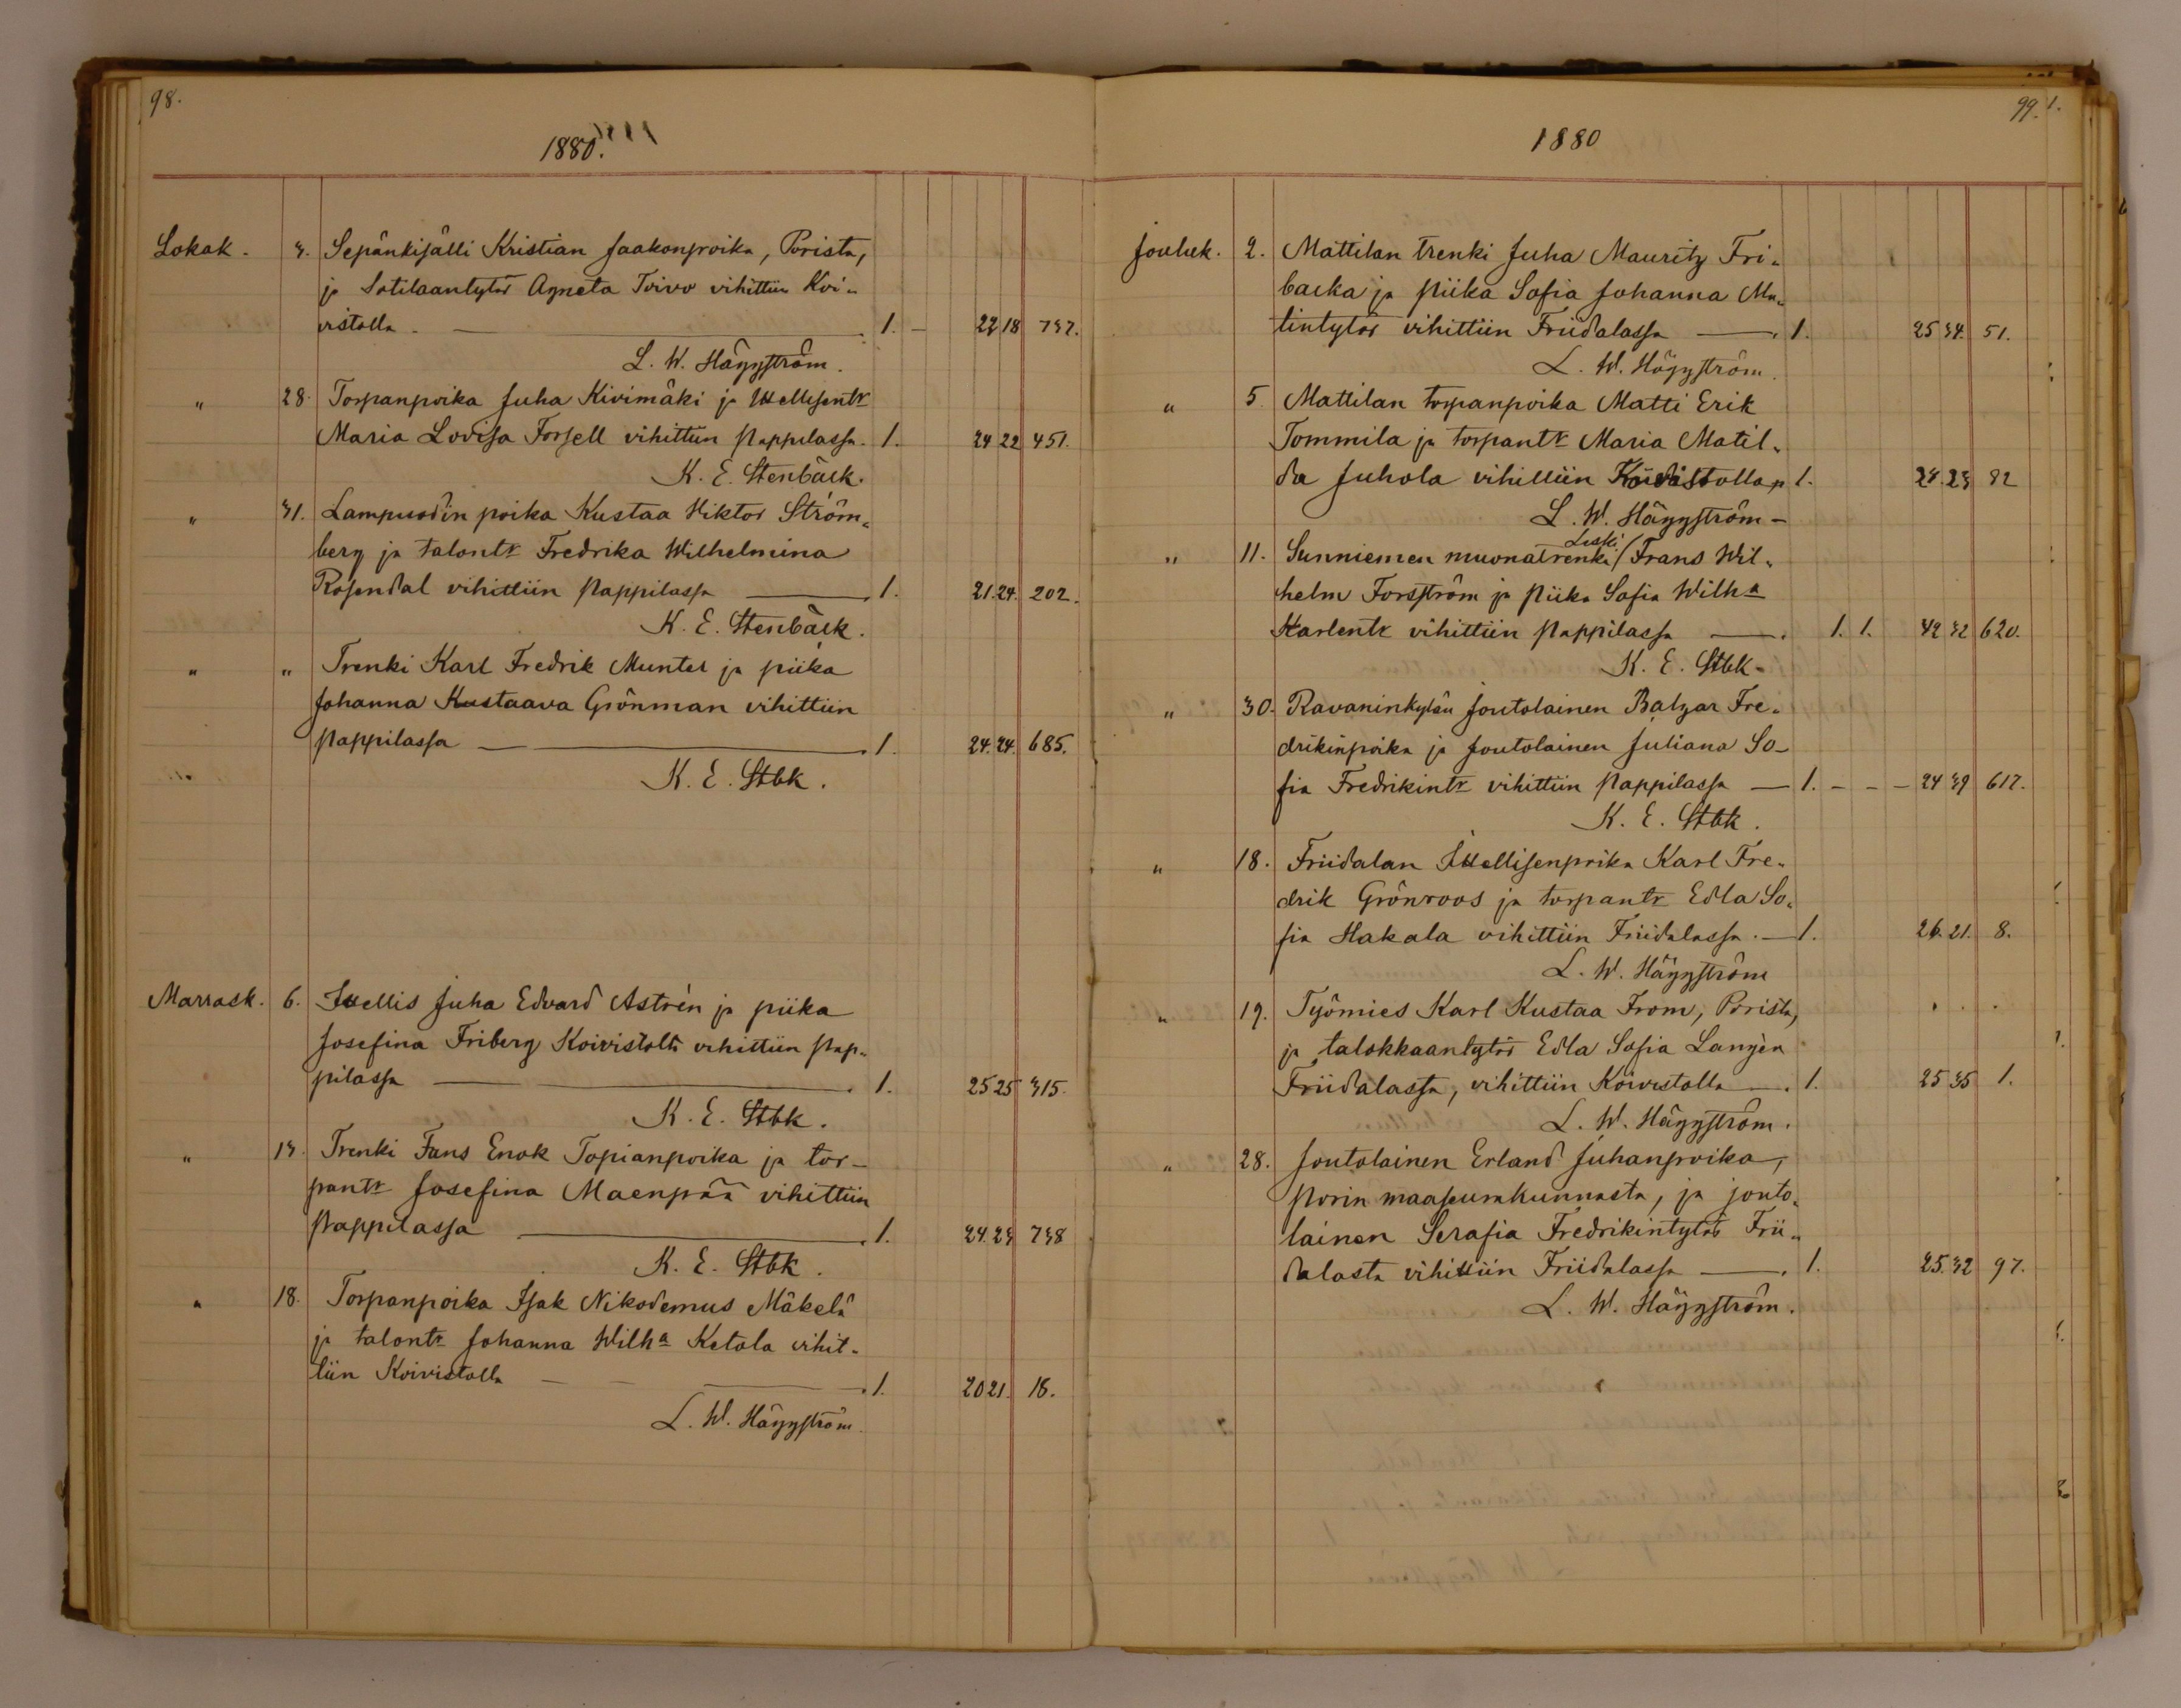 98.
1880.
Lokak. 3. Sepänkisälli Kristian Jaakonpoika, Porista,
ja Sotilaantytör Agneta Toivo vihittiin Koi-
vistolla. 1. 22 18 737.
L. W. Häggström.
" 28. Torpanpoika Juha Kivimäki ja Itsellisentr
Maria Lovisa Forsell vihittiin Pappilassa. 1. 24 22 451.
K. E. Stenbäck.
" 31. Lampuodin poika Kustaa Viktor Ström-
berg ja talontr Fredrika Wilhelmina
Rosendal vihittiin Pappilassa 1. 21. 24. 202.
K. E. Stenbäck.
" " Trenki Karl Fredrik Munter ja piika
Johanna Kustaava Grönman vihittiin
Pappilassa 1. 24. 24. 685.
K. E. Stbk.
Marrask. 6. Itsellis Juha Edvard Astrén ja piika
Josefina Friberg Koivistolta vihittiin Pap-
pilassa 1. 25 25 315.
K. E. Stbk.
" 13. Trenki Frans Enok Topianpoika ja tor-
pantr Josefina Maenpää vihittiin
Pappilassa 1. 24. 23 738
K. E. Stbk.
" 18. Torpanpoika Isak Nikodemus Mäkelä
ja talontr Johanna Wilha Ketola vihit-
tiin Koivistolla 1. 20 21. 16.
L. W. Häggström.
99.
1880
Jouluk. 2. Mattilan trenki Juha Mauritz Fri-
backa ja piika Sofia Johanna Ma-
tintytör vihittiin Friidalassa 1. 25 34. 51.
L. W. Häggström.
" 5. Mattilan torpanpoika Matti Erik
Tommila ja torpantr Maria Matil-
da Juhola vihittiin Koivistolla 1. 24. 23 82
L. W. Häggström
Leski
" 11. Sunniemen muonatrenki / Frans Wil-
helm Forsström ja piika Sofia Wilha
Karlentr vihittiin Pappilassa 1. 1. 42 32 620.
K. E. Stbk
" 30. Ravaninkylän Joutolainen Balzar Fre-
drikinpoika ja Joutolainen Juliana So-
fia Fredrikintr vihittiin Pappilassa 1. 24 39 617.
K. E. Stbk.
" 18. Friidalan Itsellisenpoika Karl Fre-
drik Grönroos ja torpantr Edla So-
fia Hakala vihittiin Friidalassa. 1. 26. 21. 8.
L. W. Häggström
" 19. Työmies Karl Kustaa From, Porista,
ja talokkaantytör Edla Sofia Langén
Friidalasta, vihittiin Koivistolla 1. 25 35 1.
L. W. Häggström.
" 28. Joutolainen Erland Juhanpoika,
Porin maaseurakunnasta, ja jouto-
lainen Serafia Fredrikintytör Frii-
dalasta vihittiin Friidalassa 1. 25. 32 97.
L. W. Häggström.